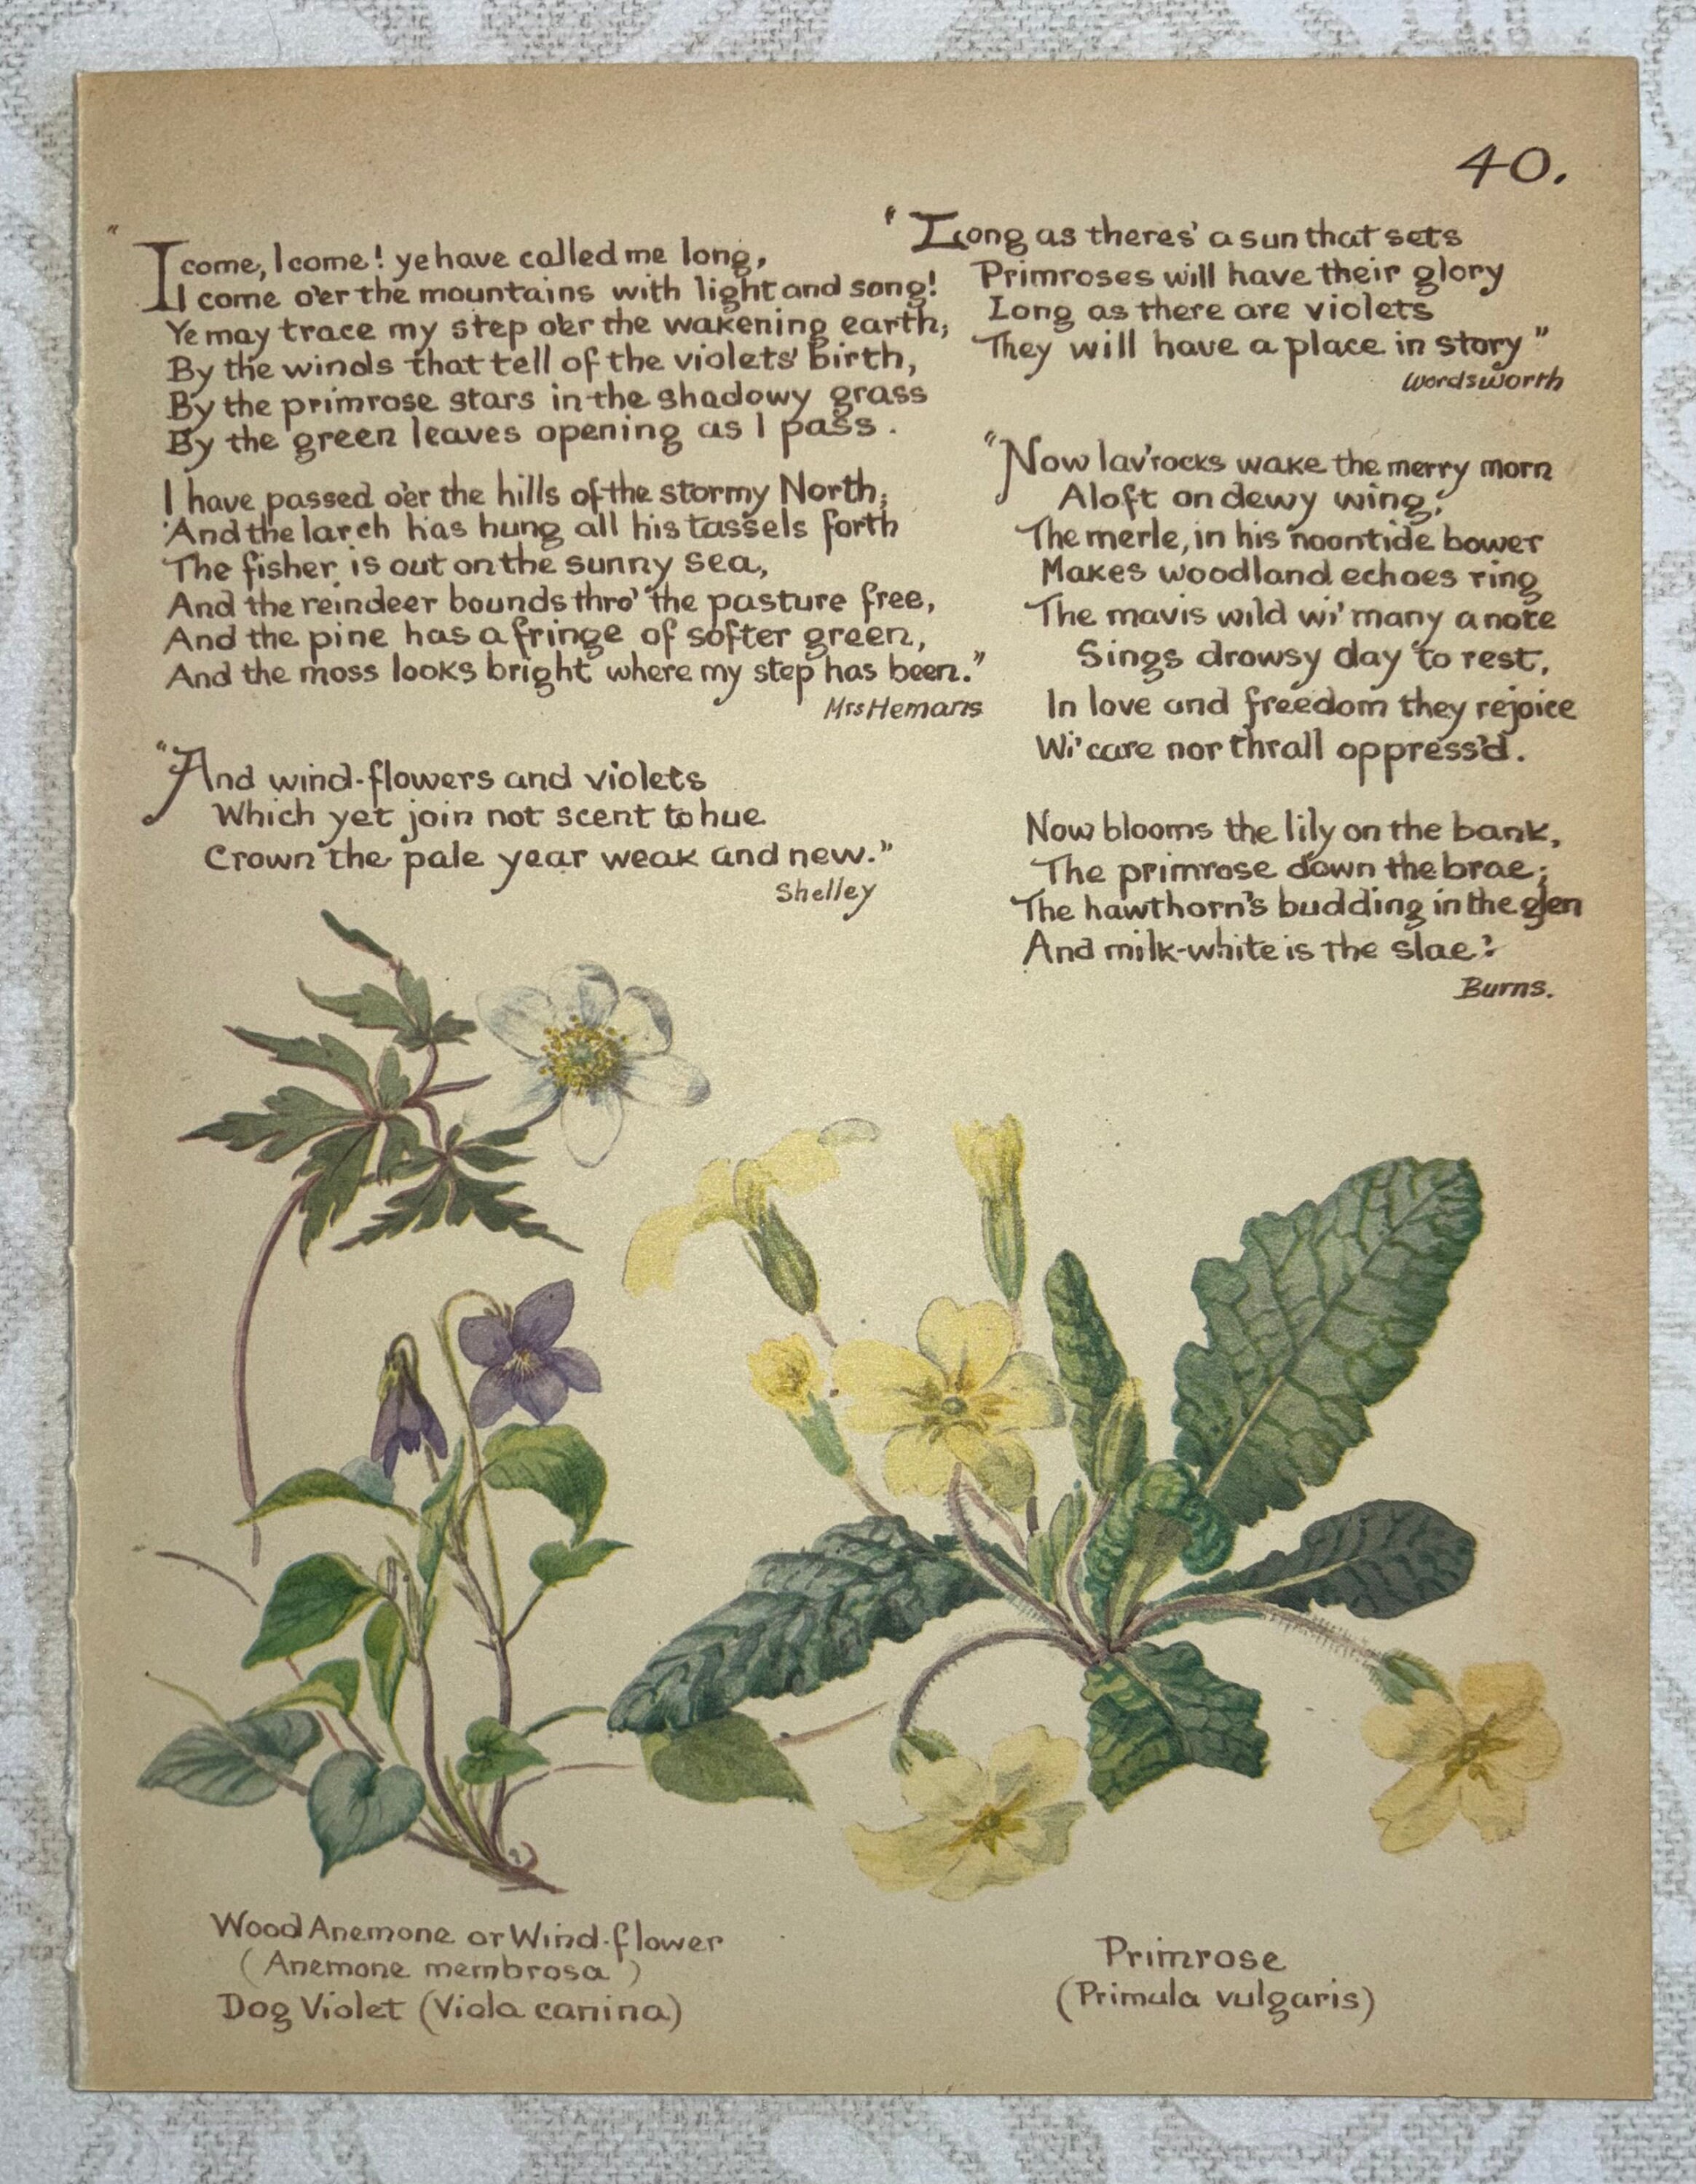 40.
"I come, I come! ye have called me long,
I come o'er the mountains with light and song!
Ye may trace my step o'er the wakening earth,
By the winds that tell of the violets' birth,
By the primrose stars in the shadowy grass
By the green leaves opening as I pass.
I have passed o'er the hills of the stormy North;
And the larch has hung all his tassels forth
The fisher is out on the sunny sea,
And the reindeer bounds thro' the pasture free,
And the pine has a fringe of softer green,
And the moss looks bright where my step has been."
Mrs Hemans
"And wind-flowers and violets
Which yet join not scent to hue
Crown the pale year weak and new."
Shelley
"Long as theres' a sun that sets
Primroses will have their glory
Long as there are violets
They will have a place in story"
Wordsworth
"Now lav'rocks wake the merry morn
Aloft on dewy wing;
The merle, in his noontide bower
Makes woodland echoes ring
The mavis wild wi' many a note
Sings drowsy day to rest,
In love and freedom they rejoice
Wi' care nor thrall oppress'd.
Now blooms the lily on the bank,
The primrose down the brae;
The hawthorn's budding in the glen
And milk-white is the slae:
Burns.
Wood Anemone or Wind-flower
(Anemone membrosa)
Dog Violet (Viola canina)
Primrose
(Primula vulgaris)